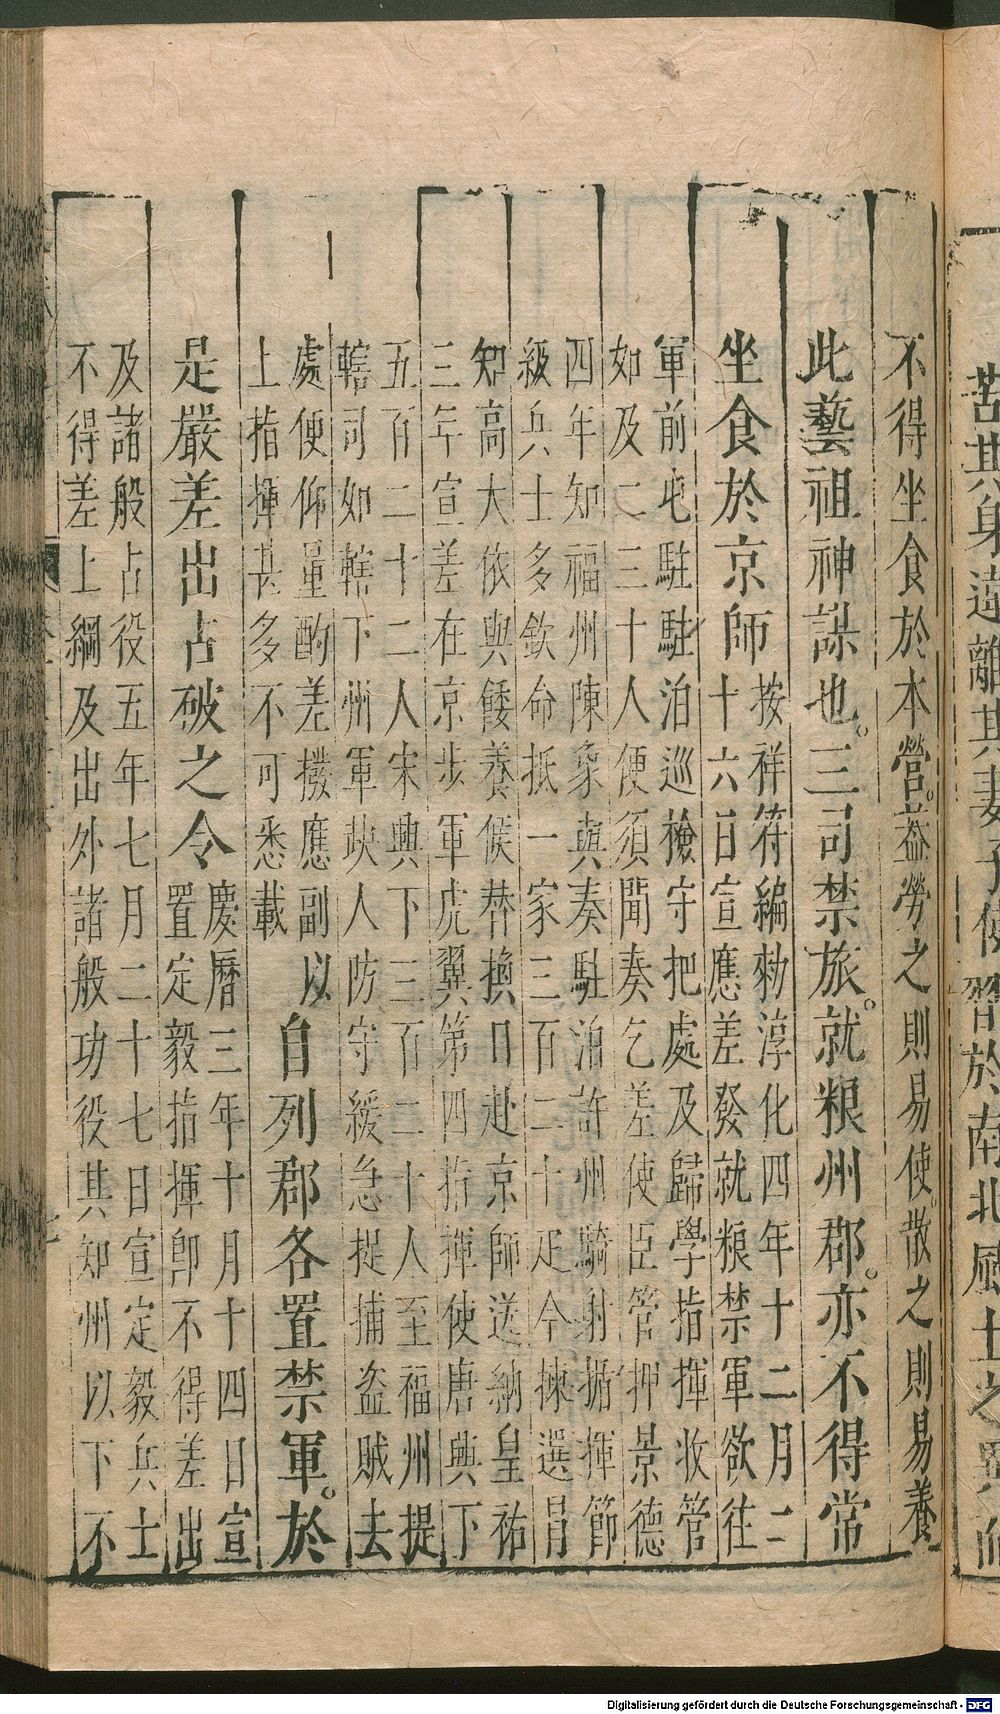 苦其身違離其妻子使習於南北風土之異而
不得坐食於本營。益勞之則易使。散之則易養
此藝祖神謀也。三司禁旅。就粮州郡。亦不得常
坐食於京師
按祥符編勑淳化四年十二月二
十六日宣應差發就粮禁軍欲往
軍前屯駐駐泊巡檢守把處及歸學指揮收管
如及二三十人便須聞奏乞差使臣管押景德
四年知福州陳象輿奏駐泊許州騎射指揮節
級兵士多欽命抵一家三百二十疋今揀選昌
知高大依與餧養候替換日赴京師送納皇祐
三年宣差在京步軍虎翼第四指揮使唐興下
五百二十二人宋興下三百二十人至福州提
轄司如轄下州軍缺人防守緩急提捕盗賊去
處便仰量酌差撥應副 以
上指揮甚多不可悉載
自列郡各置禁軍。於
是嚴差出占破之令
慶曆三年十月十四日宣
置定毅指揮卽不得差出
及諸般占役五年七月二十七日宣定毅兵士
不得差上綱及出外諸般功役其知州以下不
Digitalisierung gefördert durch die Deutsche Forschungsgemeinschaft - DFG